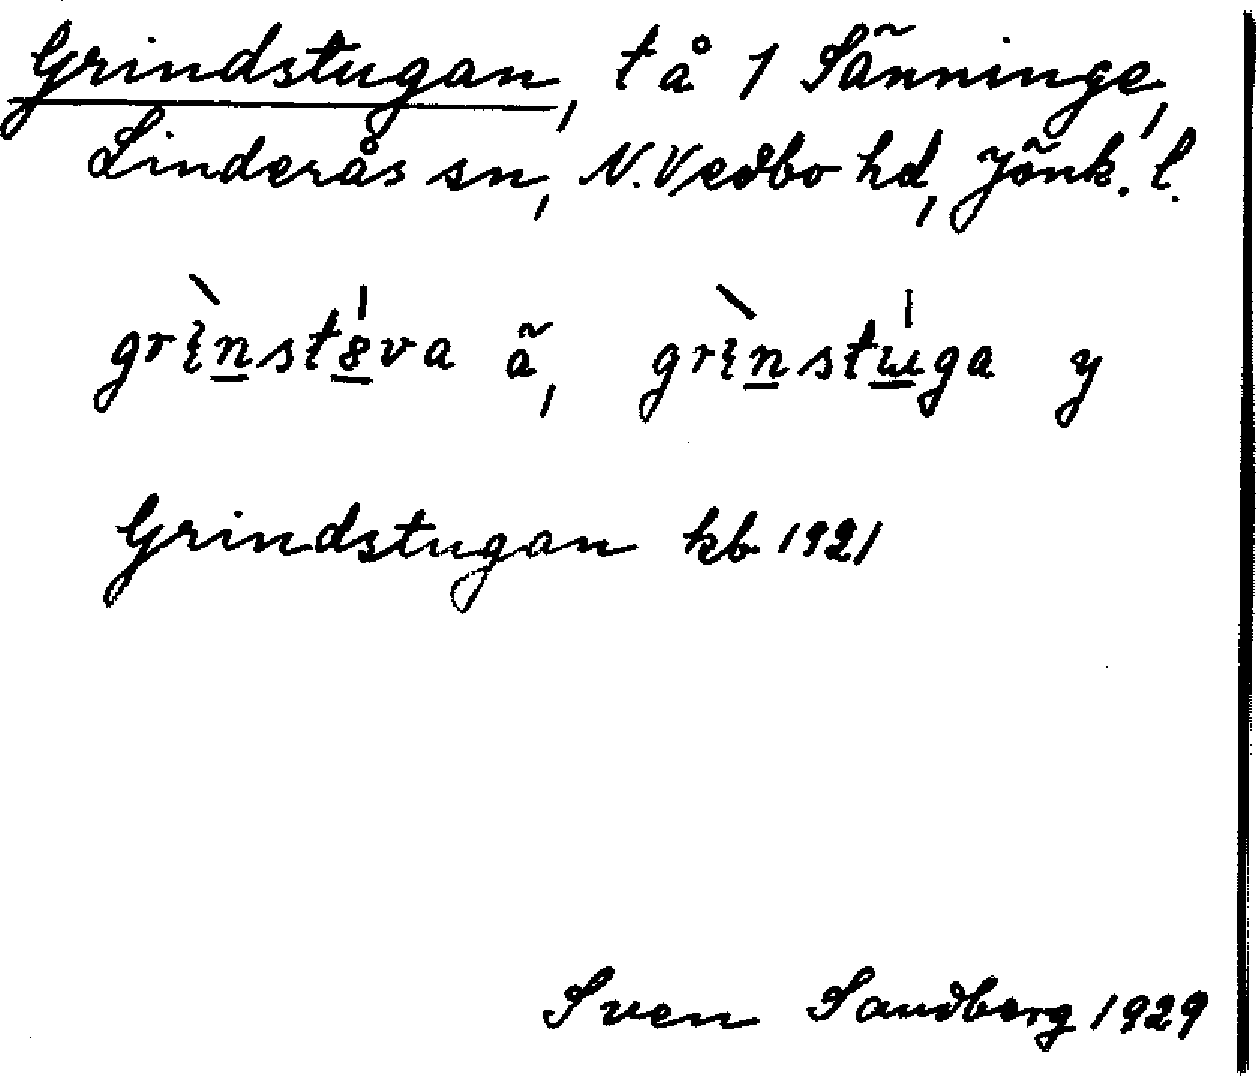 Grindstugan, tå 1 Sänninge,
Linderås sn, N. Vedbo hd, Jönk. l.
grìnstȣ́va ä, grìnstɯ́ga y
Grindstugan kb 1921
Sven Sandberg 1929